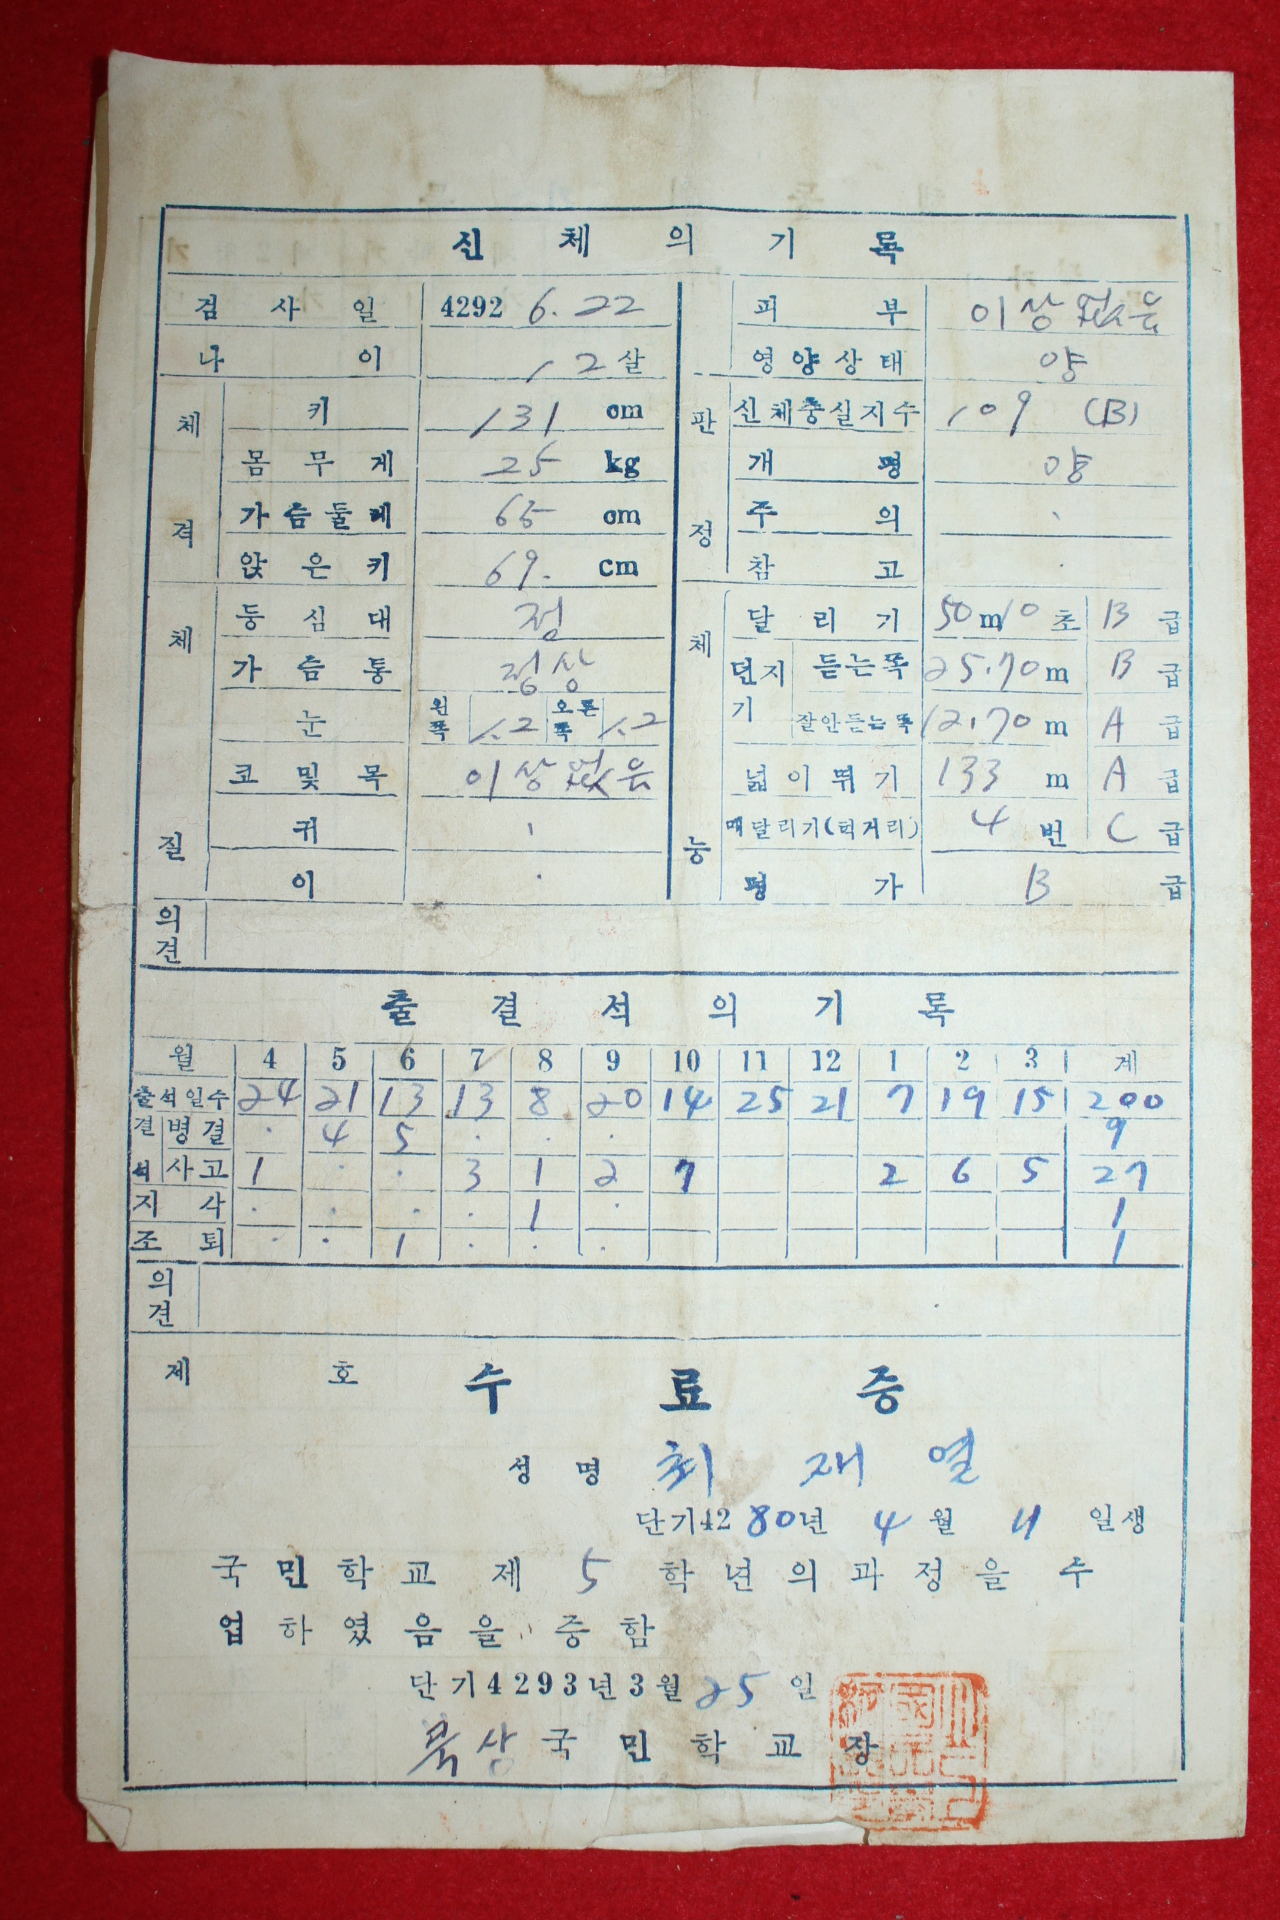 신체의기록
검사일 4292 6. 22 피부 이상없음
나이 12살 영양상태 양
체격 키 131 cm 판정 신체충실지수 109 (B)
몸무게 25 kg 개평 양
가슴둘레 65 cm 주의
앉은키 69. cm 참고
체질 등심대 정 체능 달리기 50m 10초 B급
가슴통 정상 던지기 듣는쪽 25.70m B급
눈 왼쪽 1.2 오른쪽 1.2 잘안듣는쪽 12.70m A급
코및목 이상없음 넓이뛰기 133 m A급
귀 매달리기(턱거리) 4번 C급
이 평가 B급
의견
출결석의기록
월 4 5 6 7 8 9 10 11 12 1 2 3 계
출석일수 24 21 13 13 8 20 14 25 21 7 19 15 200
결석 병결 4 5 9
사고 1 3 1 2 7 2 6 5 27
지각 1 1
조퇴 1 1
의견
제 호 수료증
성명 최재열
단기4280년 4월 11일생
국민학교 제 5 학년의과정을 수
업하였음을 증함
단기4293년3월 25일
북상국민학교장